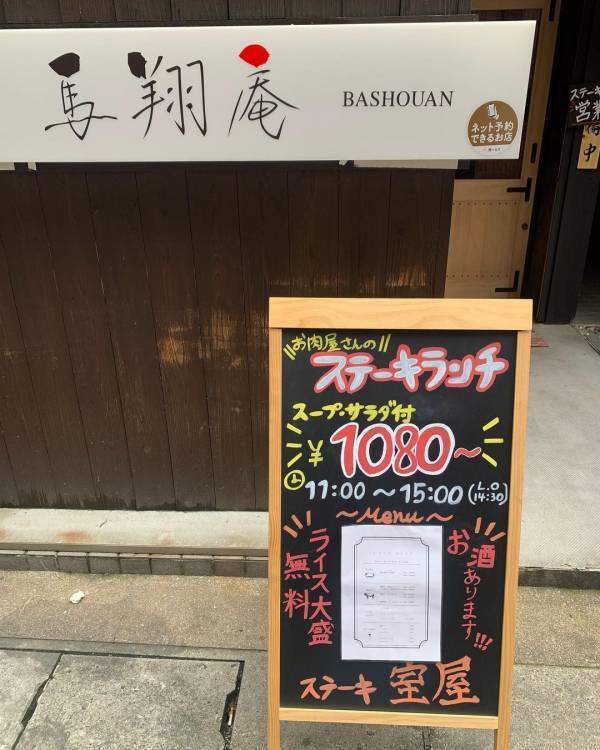 馬翔庵
BASHOUAN
ネット予約
できるお店
ステーキ
営業
中
お肉屋さんの
ステーキランチ
スープ・サラダ付
¥1080~
11:00 ~ 15:00 (L.O 14:30)
~Menu~
ライス大盛
無料
お酒あります!!!
ステーキ 室屋